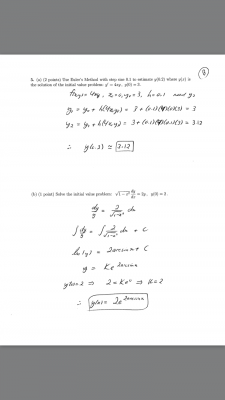 3
5. (a) (2 points) Use Euler's Method with step size 0.1 to estimate y(0.2) where y(x) is
the solution of the initial value problem: y' = 4xy, y(0) = 3.
f(x,y) = 4xy, x₀ = 0, y₀ = 3, h = 0.1 need y₂
y₁ = y₀ + h(4x₀y₀) = 3 + (0.1)(4)(0)(3) = 3
y₂ = y₁ + h(4x₁y₁) = 3 + (0.1)(4)(0.1)(3) = 3.12
∴ y(0.2) ≈ 3.12
(b) (1 point) Solve the initial value problem: √1 − x² dy/dx = 2y, y(0) = 2.
dy/y = 2/√1-x² dx
∫ dy/y = ∫ 2/√1-x² dx + C
ln|y| = 2arcsinx + C
y = Ke^2arcsinx
y(0)=2 ⇒ 2 = Ke⁰ ⇒ K=2
∴ y(x) = 2e^2arcsinx